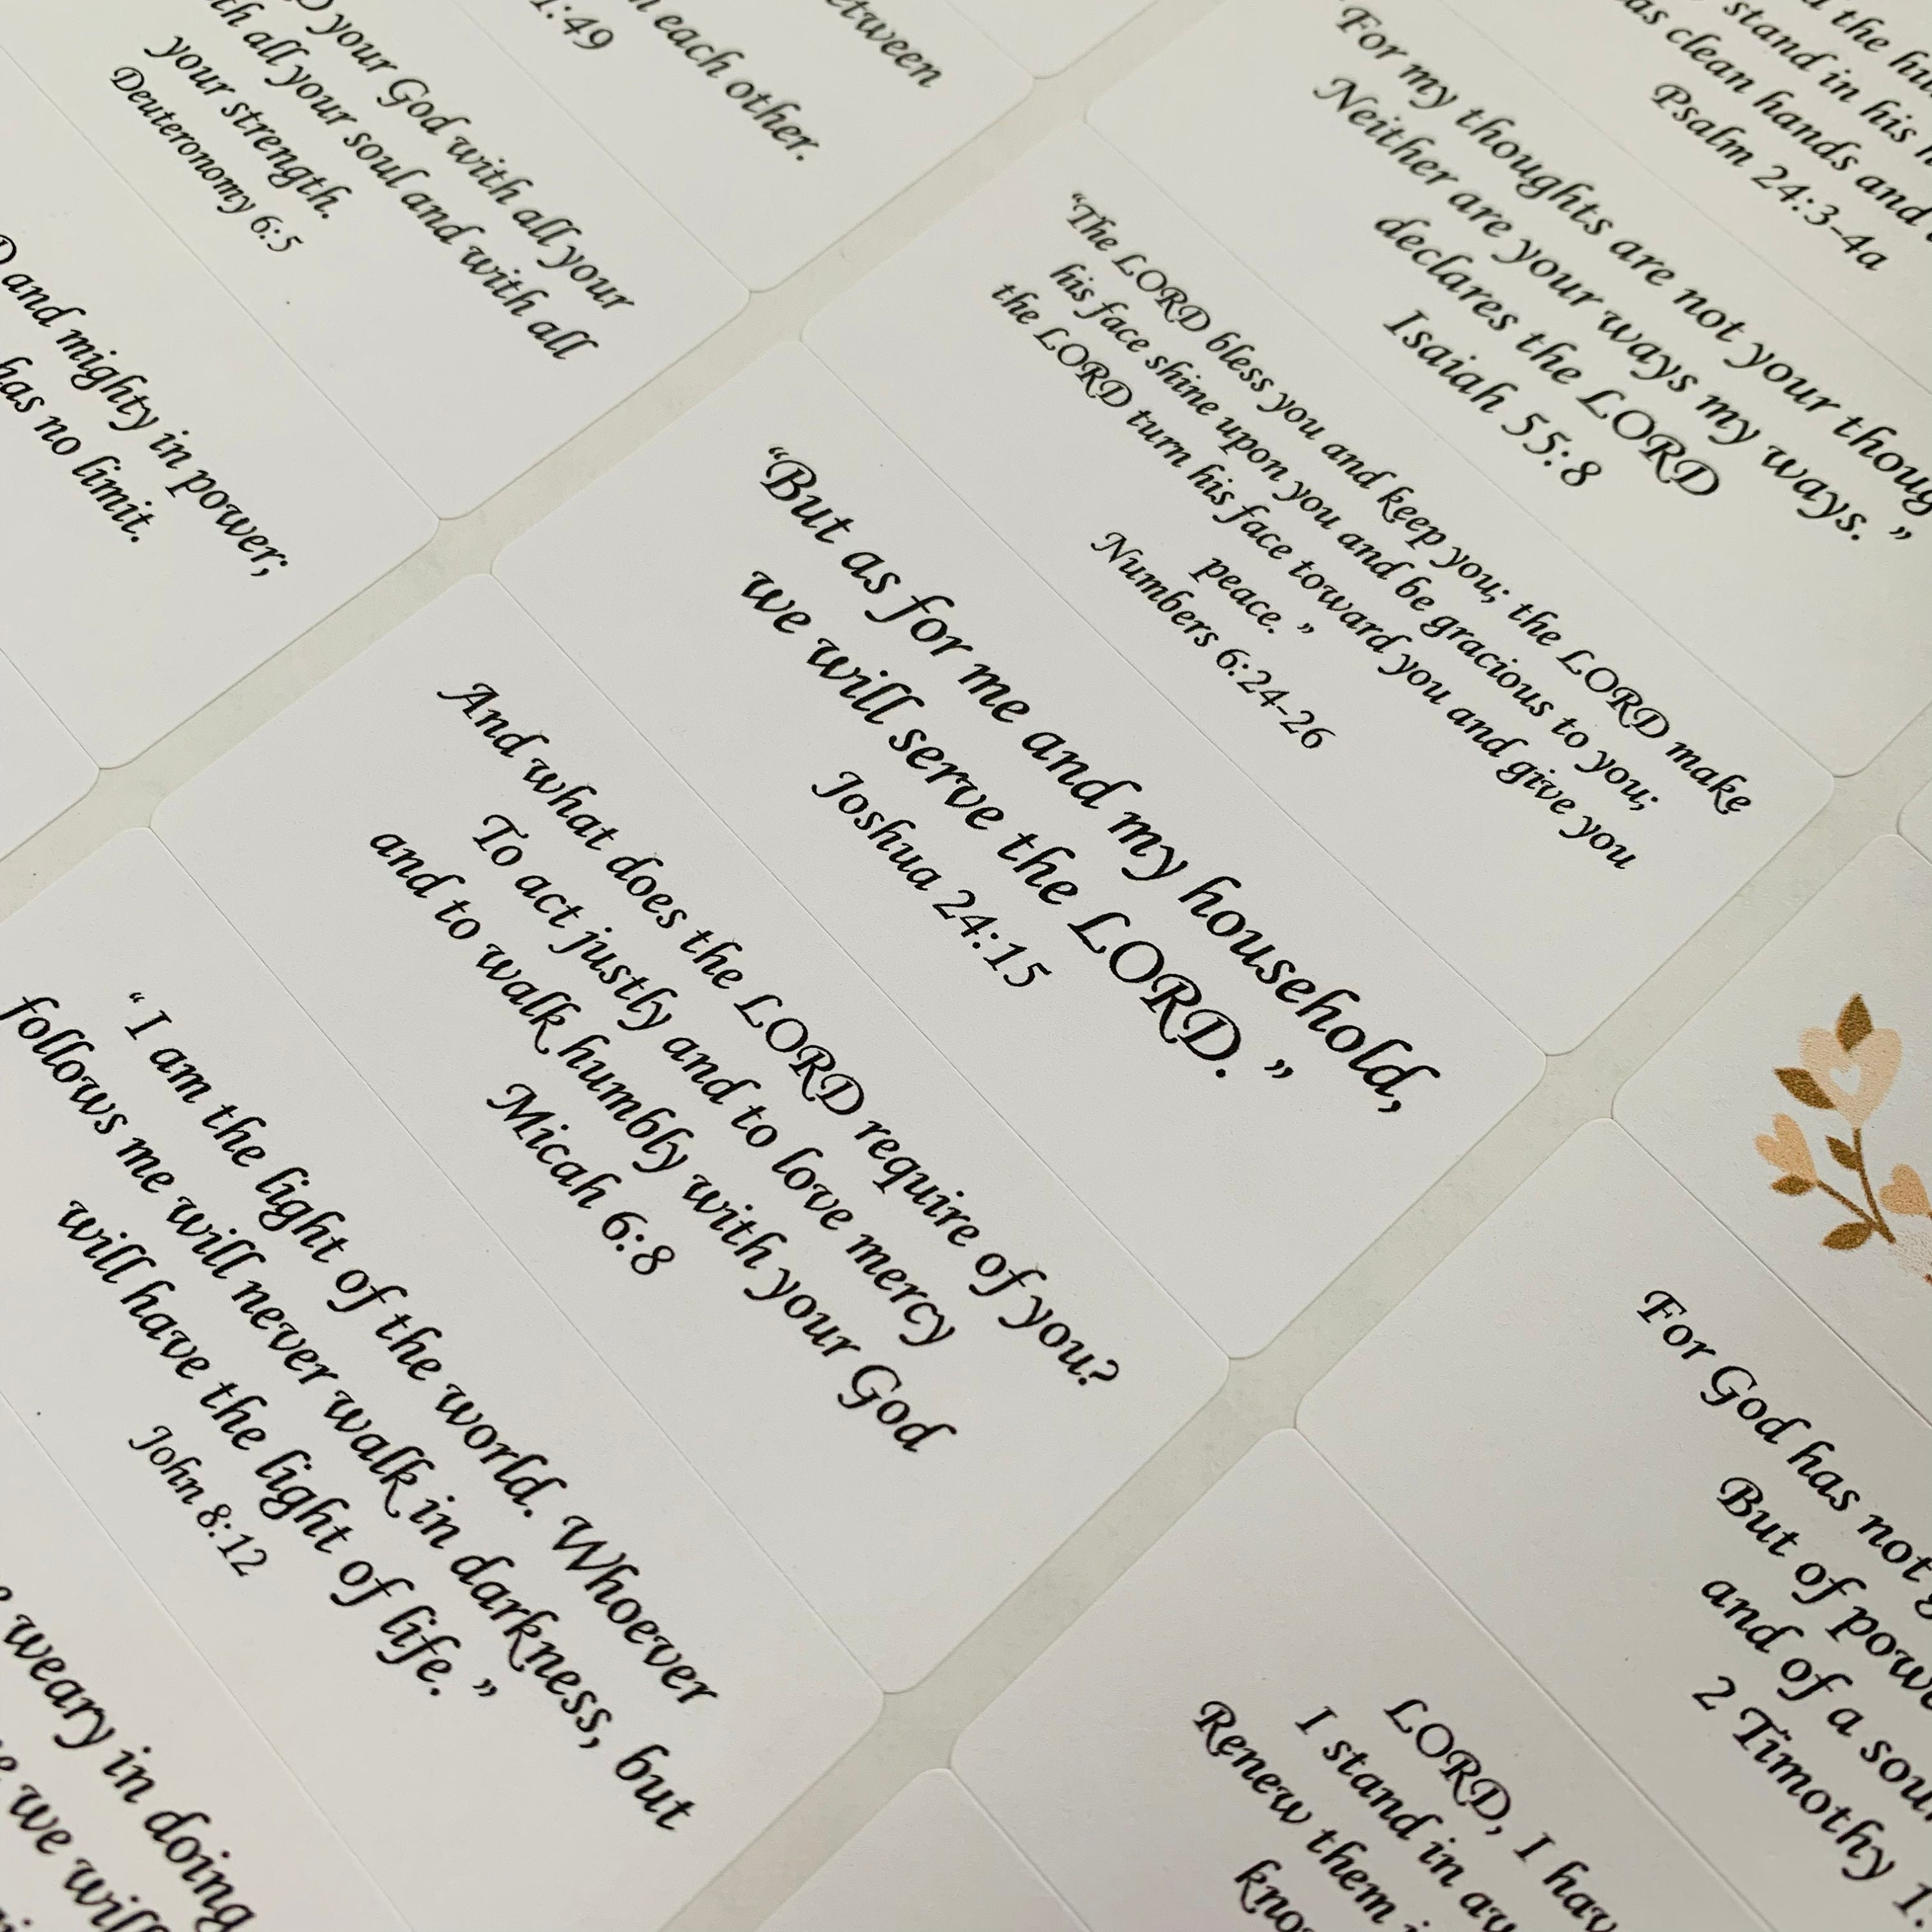 your God with all your
all your soul and with all
your strength.
Deuteronomy 6:5
1:49
each other.
and mighty in power;
has no limit.
the
stand in his
clean hands and
Psalm 24:3-4a
"For my thoughts are not your
Neither are your ways my ways."
declares the LORD
Isaiah 55:8
"The LORD bless you and keep you; the LORD make
his face shine upon you and be gracious to you;
the LORD turn his face toward you and give you
peace."
Numbers 6:24-26
"But as for me and my household,
we will serve the LORD."
Joshua 24:15
And what does the LORD require of you?
To act justly and to love mercy
and to walk humbly with your God
Micah 6:8
"I am the light of the world. Whoever
follows me will never walk in darkness, but
will have the light of life."
John 8:12
weary in doing
we will
For God has not
But of
and of a
2 Timothy
LORD, I
I stand in
Renew them